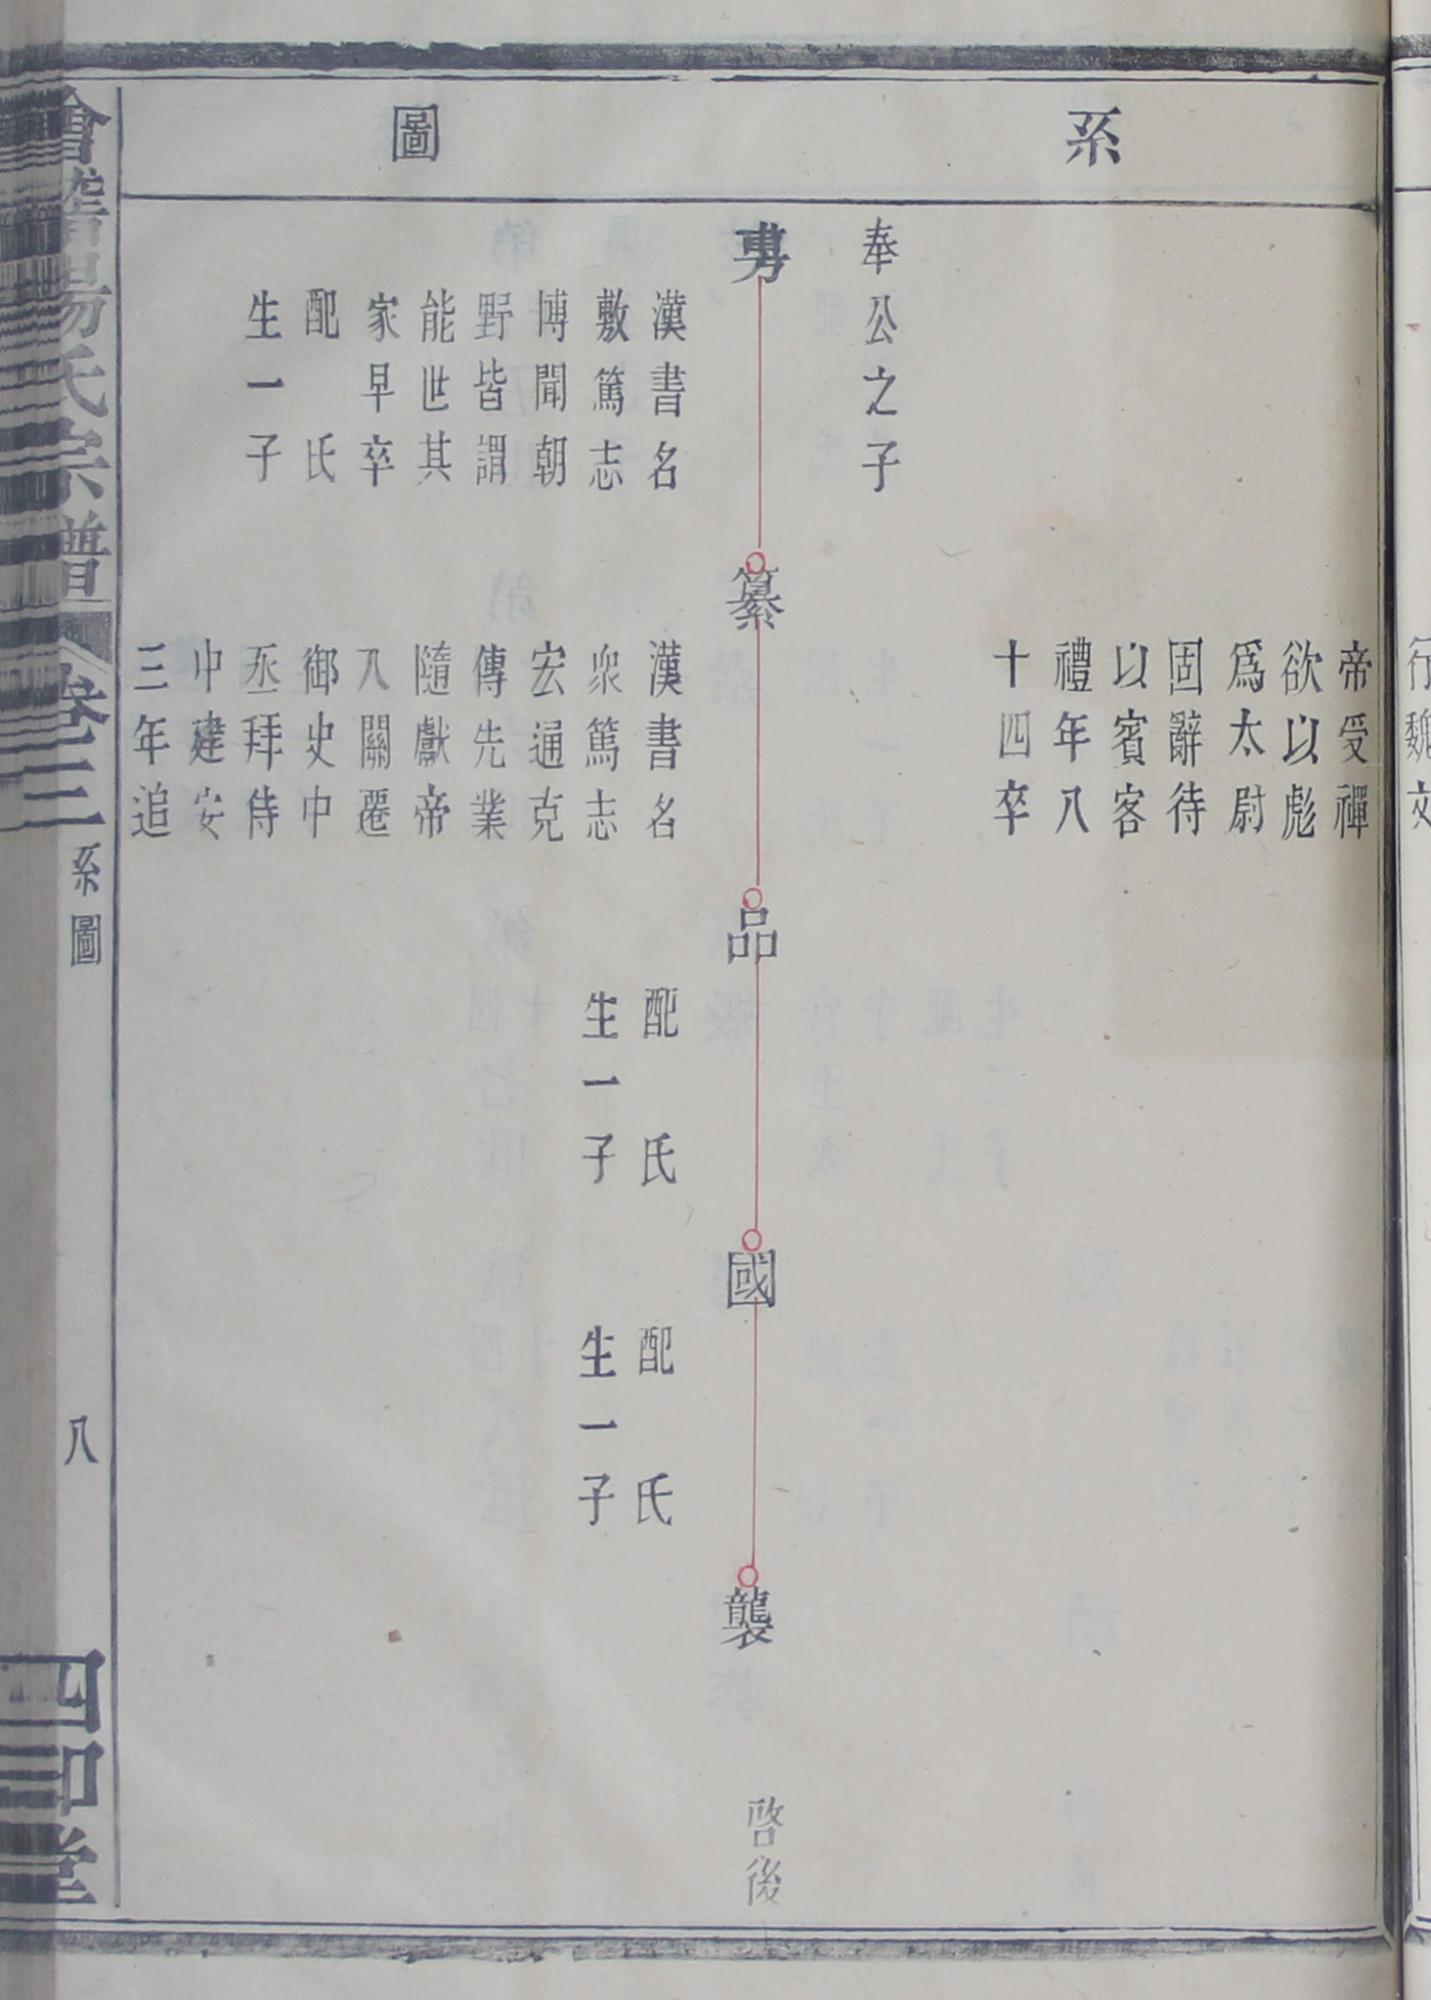 系圖
帝受禪
欲以彪
爲太尉
固辭待
以賓客
禮年八
十四卒
奉公之子
旉
漢書名
敷篤志
博聞朝
野皆謂
能世其
家早卒
配 氏
生一子
纂
漢書名
衆篤志
宏通克
傳先業
隨獻帝
入關遷
御史中
丞拜侍
中建安
三年追
品
配 氏
生一子
國
配 氏
生一子
襲
啓後
會稽楊氏宗譜
卷三
系圖
八
四知堂